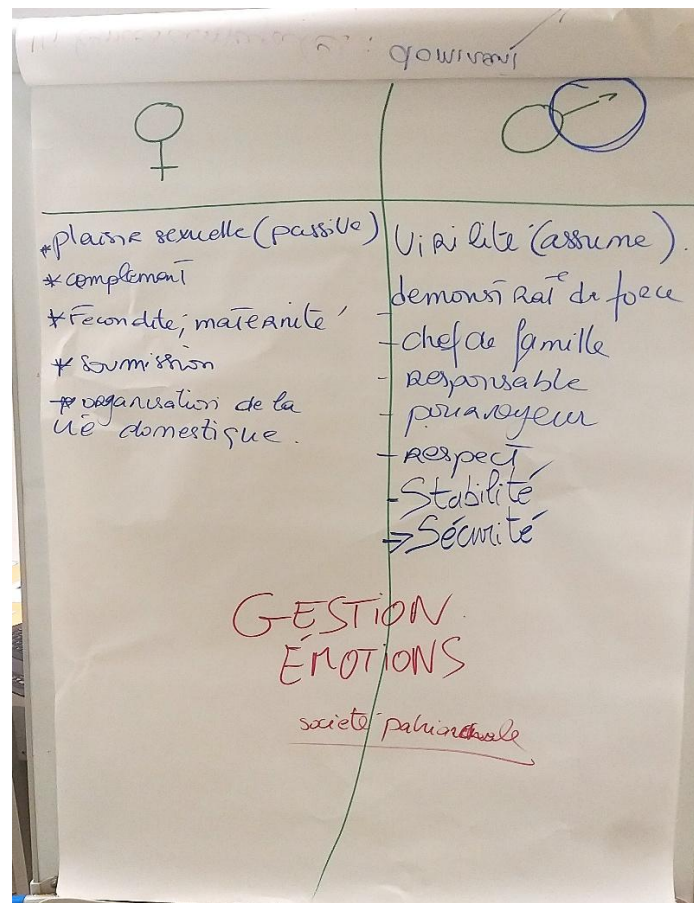 dominant
*plaisir sexuelle (passive)
*complement
*Fecondite; maternité
*Soumission
*organisation de la
vie domestique.
Virilité (assume).
demonstrat° de force
-chef de famille
-Responsable
-pourvoyeur
-Respect
-Stabilité
=>Sécurité
GESTION
ÉMOTIONS
societé patriarchale